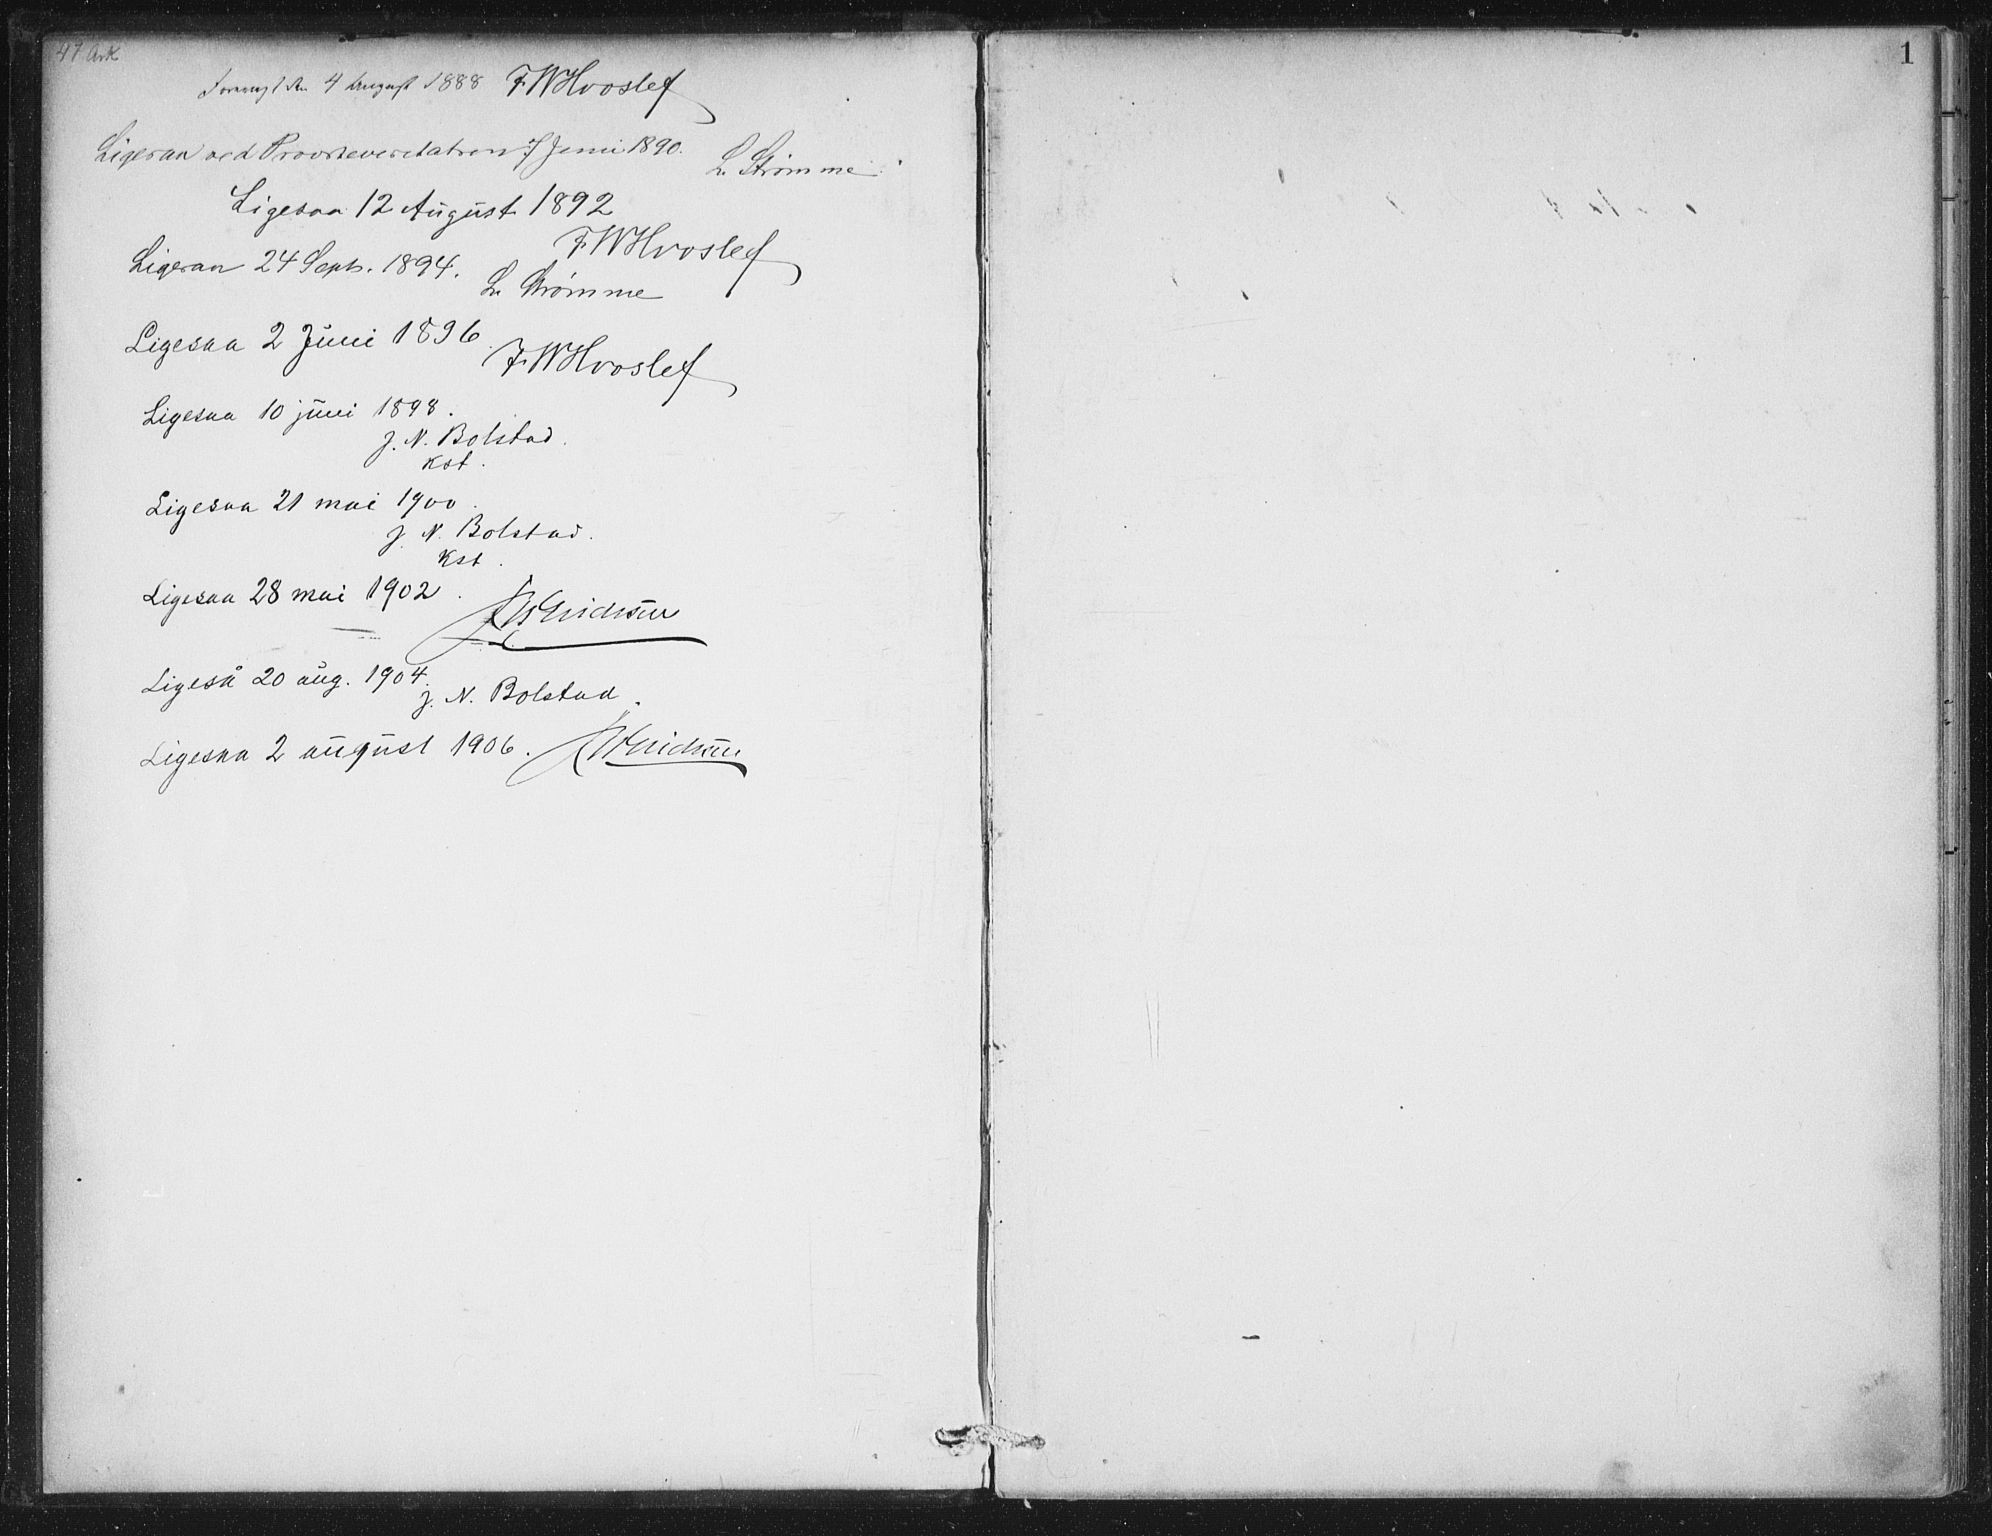 47 Ark
Forevist den 4 August 1888 F. W Hvoslef
Ligesaa ved Provstevisitatsen 7 Juni 1890.
L. Strømme
Ligesaa 12 August 1892
F. W Hvoslef
Ligesaa 24 Septb. 1894.
L. Strømme
Ligesaa 2 Juni 1896.
F. W Hvoslef
Ligesaa 10 juni 1898.
J. N. Bolstad.
Kst.
Ligesaa 21 mai 1900.
J. N. Bolstad.
Kst.
Ligesaa 28 mai 1902.
Ligeså 20 aug. 1904.
J. N. Bolstad.
Ligesaa 2 august 1906.
1